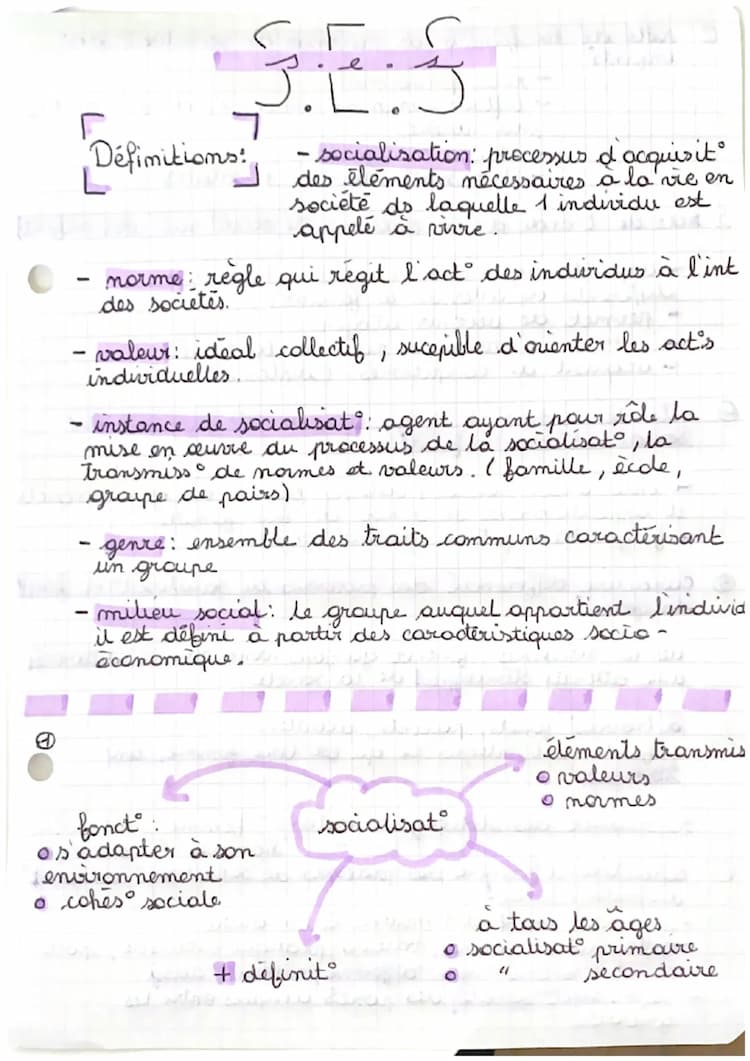 S.E.S
s.e.s
Définitions:
- socialisation: processus d'acquisit°
des éléments nécessaires à la vie en
société ds laquelle 1 individu est
appelé à vivre.
- norme: règle qui régit l'act° des individus à l'int
des sociétés.
- valeur: idéal collectif, suceptible d'orienter les act°s
individuelles.
- instance de socialisat°: agent ayant pour rôle la
mise en œuvre du processus de la socialisat°, la
transmiss° de normes et valeurs. (famille, école,
groupe de pairs)
- genre: ensemble des traits communs caractérisant
un groupe
- milieu social: le groupe auquel appartient l'individ
il est défini à partir des caractéristiques socio-
économique.
①
éléments transmis
o valeurs
o normes
socialisat°
fonct°:
o s'adapter à son
environnement
o cohés° sociale
+ définit°
à tous les âges
o socialisat° primaire
o " secondaire